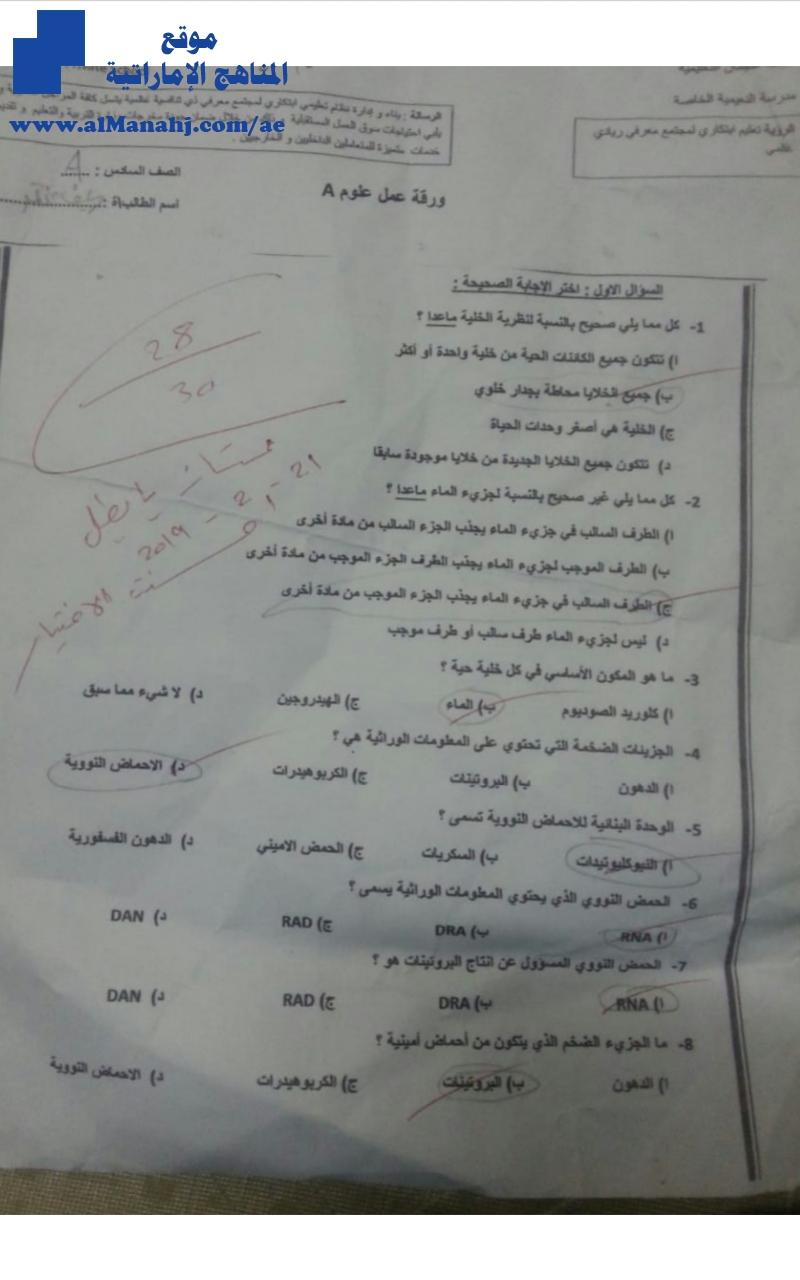 موقع
المناهج الإماراتية
www.alManahj.com/ae
مدرسة النعيمية الخاصة
الرؤية تعليم ابتكاري لمجتمع معرفي ريادي
عالمي
الرسالة : بناء و إدارة نظام تعليمي ابتكاري لمجتمع معرفي ذي تنافسية عالمية يشمل كافة المراحل
خدمات متميزة للمتعاملين الداخليين و الخارجيين .
الصف السادس : A
اسم الطالب/ة :
ورقة عمل علوم A
28
30
ممتاز يا بطل
21 - 2 - 2019
أحسنت الاختيار
السؤال الاول : اختر الإجابة الصحيحة :
1- كل مما يلي صحيح بالنسبة لنظرية الخلية ماعدا ؟
ا) تتكون جميع الكائنات الحية من خلية واحدة أو أكثر
ب) جميع الخلايا محاطة بجدار خلوي
ج) الخلية هي أصغر وحدات الحياة
د) تتكون جميع الخلايا الجديدة من خلايا موجودة سابقا
2- كل مما يلي غير صحيح بالنسبة لجزيء الماء ماعدا ؟
ا) الطرف السالب في جزيء الماء يجذب الجزء السالب من مادة أخرى
ب) الطرف الموجب لجزيء الماء يجذب الطرف الجزء الموجب من مادة أخرى
ج) الطرف السالب في جزيء الماء يجذب الجزء الموجب من مادة أخرى
د) ليس لجزيء الماء طرف سالب أو طرف موجب
3- ما هو المكون الأساسي في كل خلية حية ؟
ا) كلوريد الصوديوم ب) الماء ج) الهيدروجين د) لا شيء مما سبق
4- الجزيئات الضخمة التي تحتوي على المعلومات الوراثية هي ؟
ا) الدهون ب) البروتينات ج) الكربوهيدرات د) الاحماض النووية
5- الوحدة البنائية للاحماض النووية تسمى ؟
ا) النيوكليوتيدات ب) السكريات ج) الحمض الاميني د) الدهون الفسفورية
6- الحمض النووي الذي يحتوي المعلومات الوراثية يسمى ؟
ا) RNA ب) DRA ج) RAD د) DAN
7- الحمض النووي المسؤول عن انتاج البروتينات هو ؟
ا) RNA ب) DRA ج) RAD د) DAN
8- ما الجزيء الضخم الذي يتكون من أحماض أمينية ؟
ا) الدهون ب) البروتينات ج) الكربوهيدرات د) الاحماض النووية